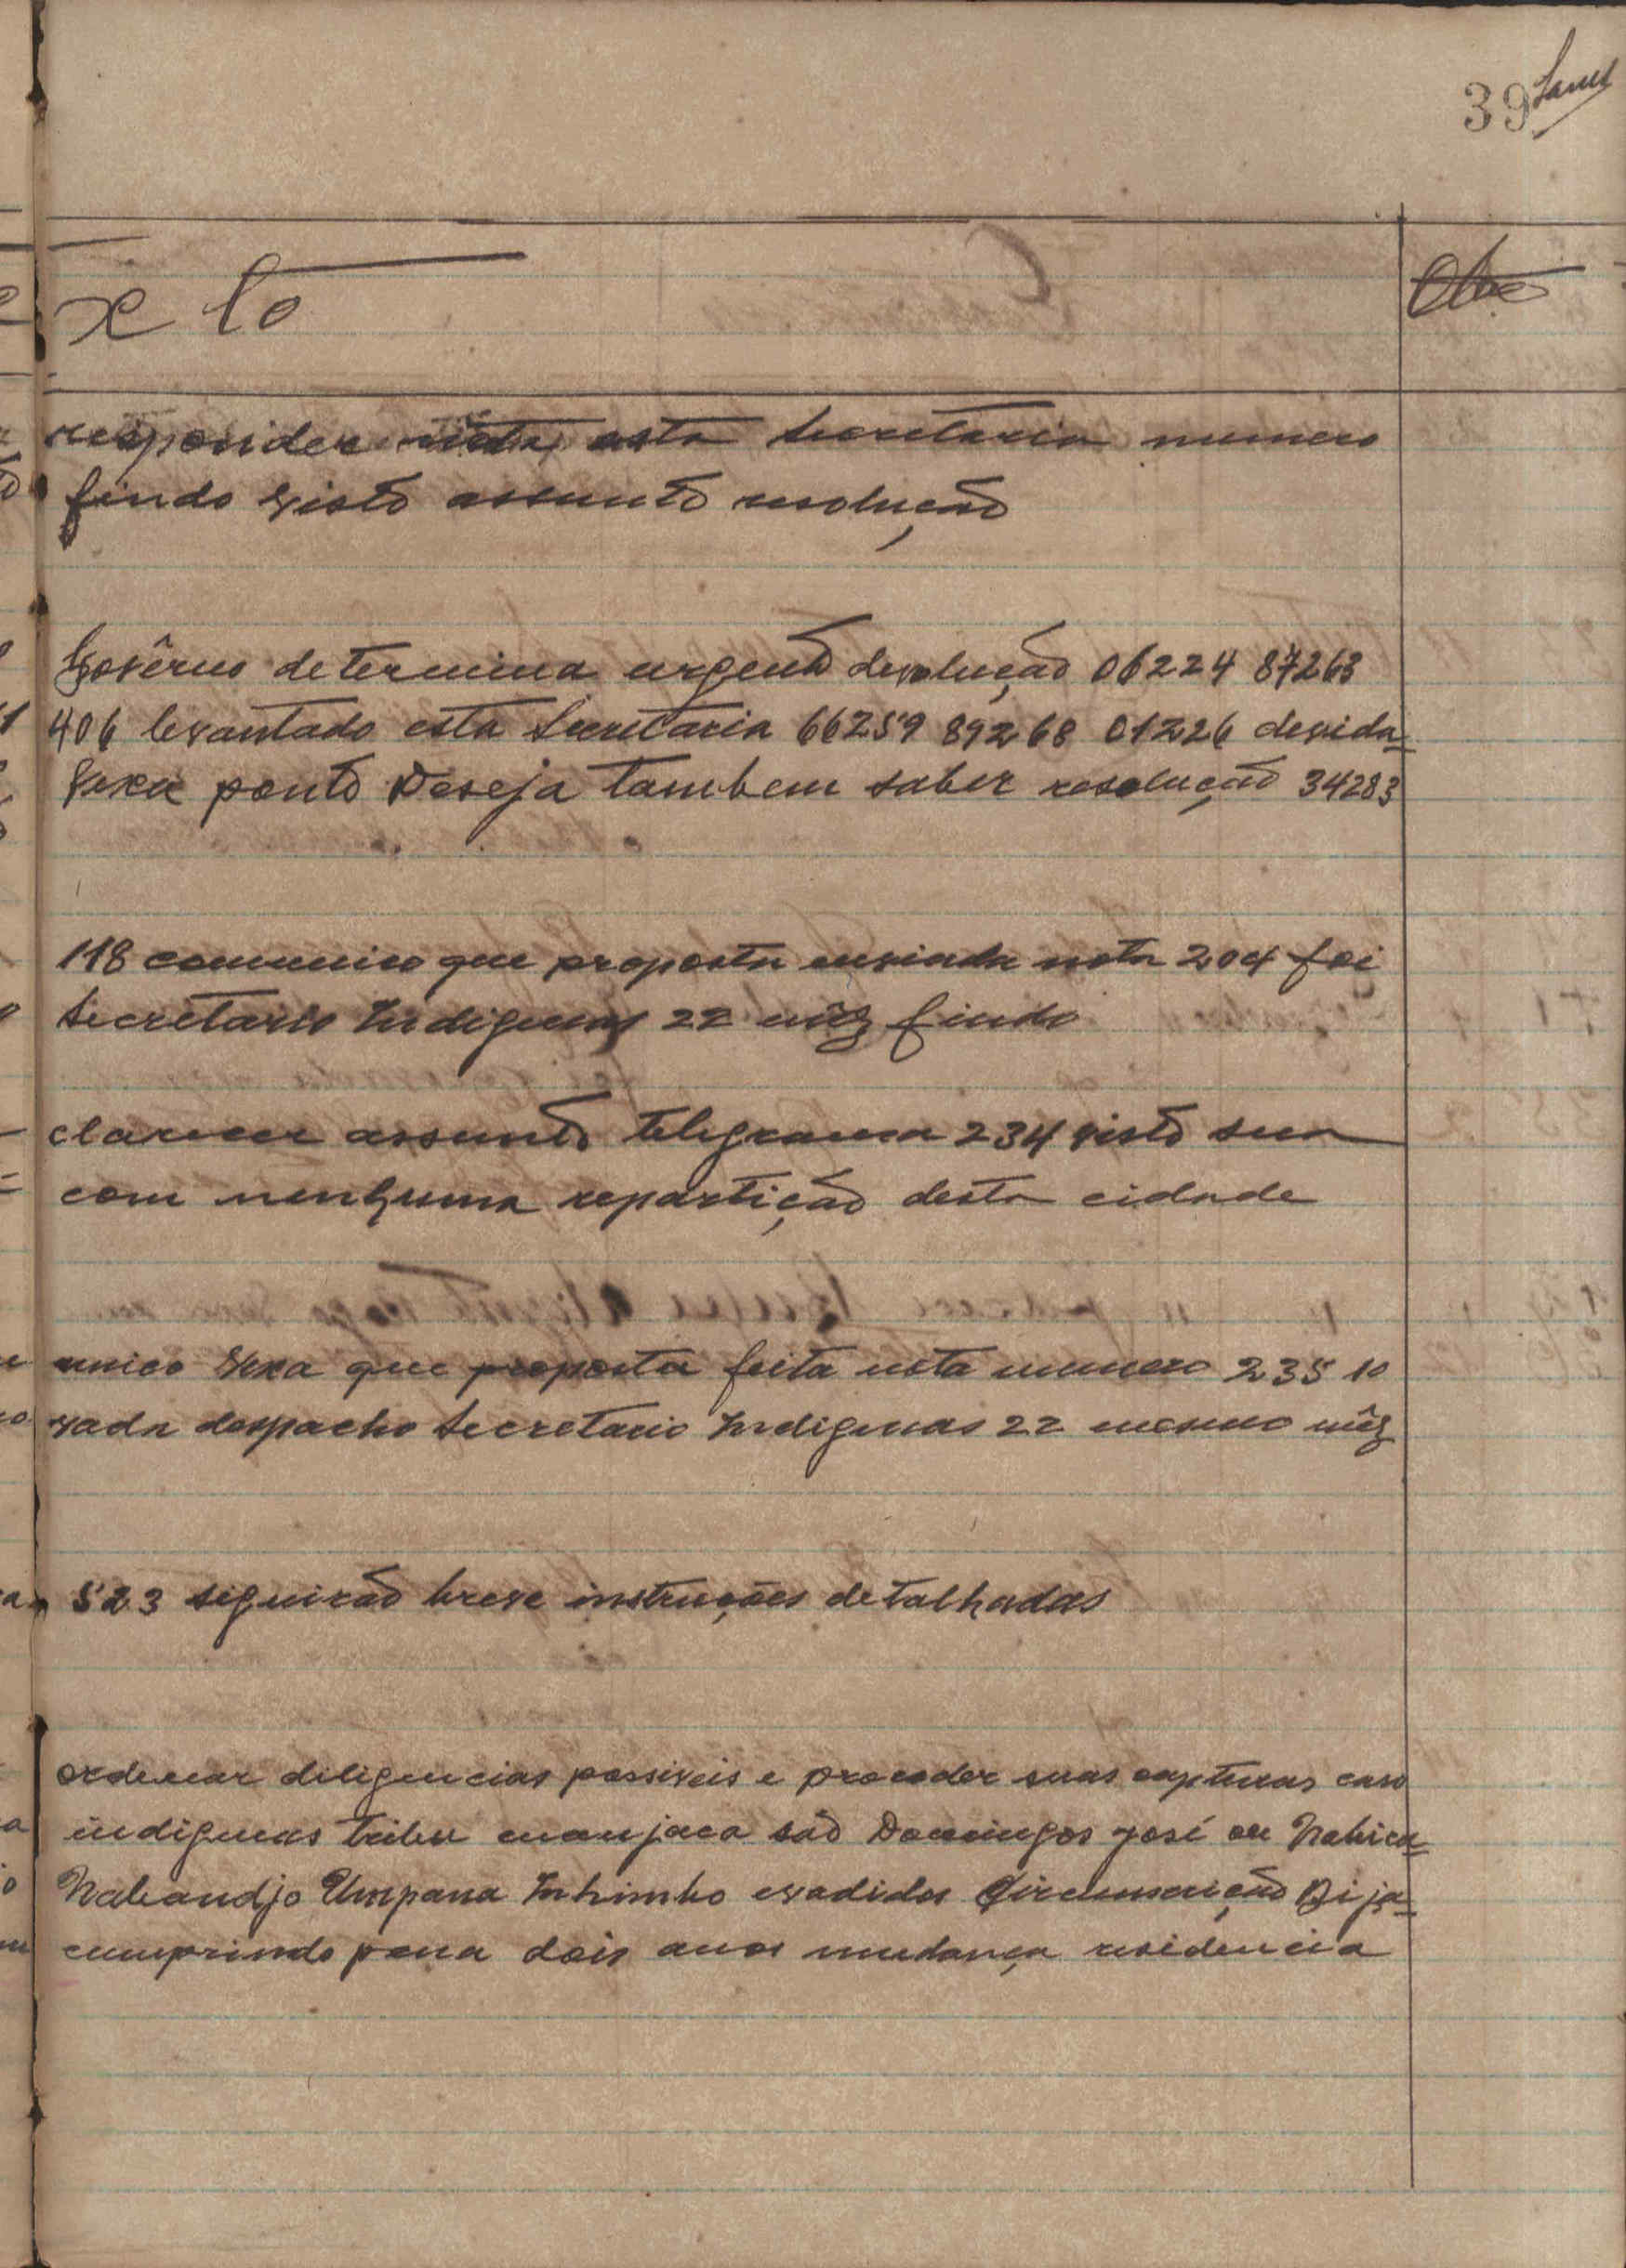 39
xto
Obs
responder nota esta Secretaria numero
findo visto assunto resolução
Govêrno determina urgente devolução 06224 87263
406 levantado esta Secretaria 66259 89268 01226 devida-
Vexa ponto Deseja tambem saber resolução 34283
118 comunico que proposta enviada nota 204 foi
Secretario Indigenas 22 mêz findo
clarecer assunto telegrama 234 visto sua
com nenhuma repartição desta cidade
unico Vexa que proposta feita nota numero 235 10
vada despacho Secretario Indigenas 22 mesmo mêz
523 seguirão breve instruções detalhadas
ordenar diligencias possiveis e proceder suas capturas caso
indigenas tribu manjaca são Domingos José ou
Inhimho evadidos Circunscrição Bija-
cumprindo pena dois anos mudança residencia